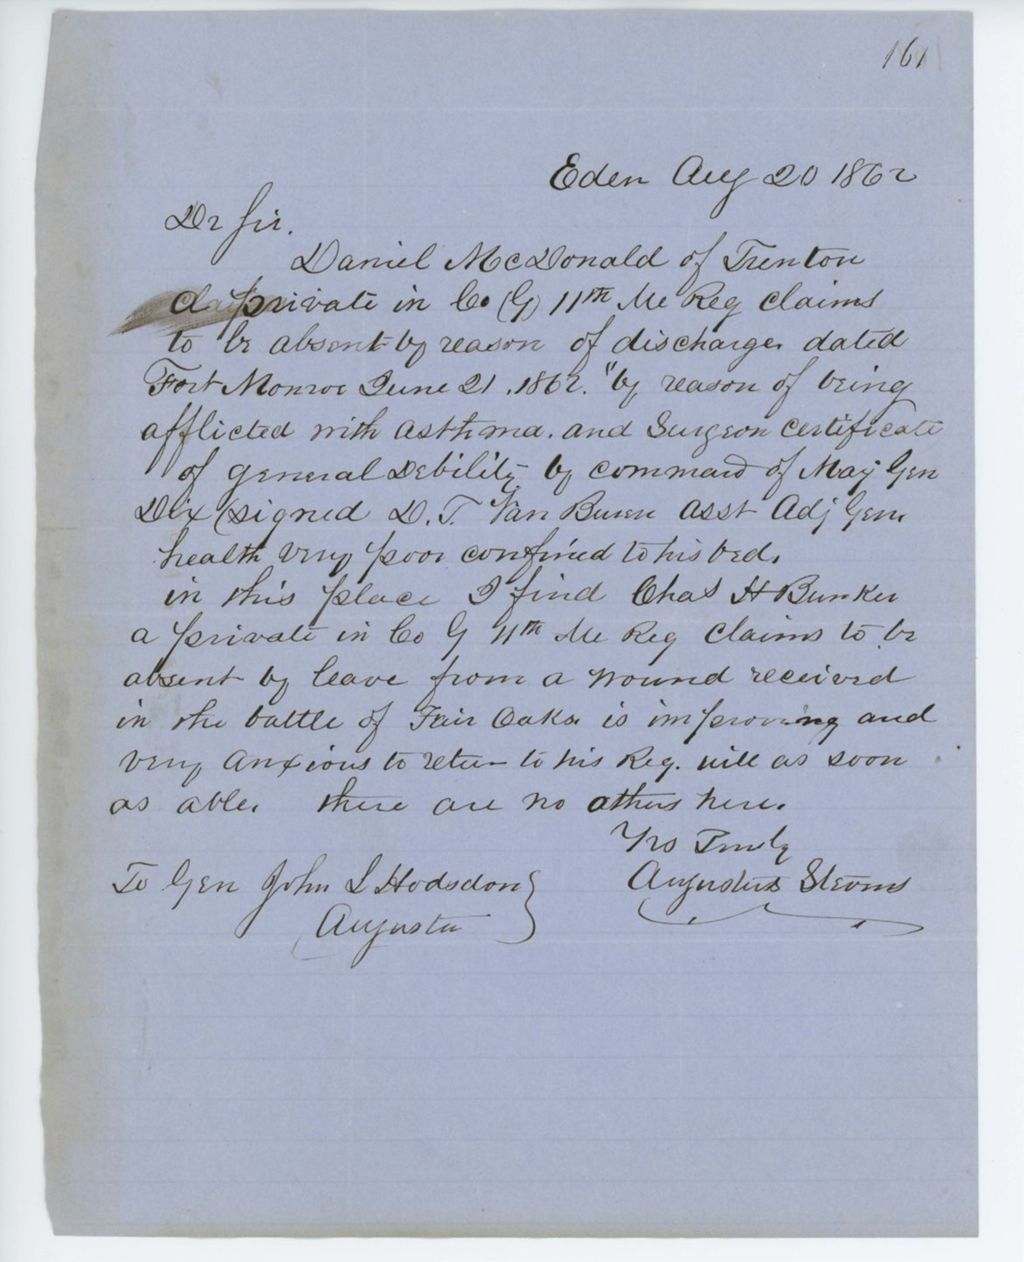 161
Eden Aug 20 1862
Dr Sir.
Daniel McDonald of Trenton
a private in Co (G) 11th Me Reg claims
to be absent by reason of discharge dated
Fort Monroe June 21, 1862. "by reason of being
afflicted with asthma. and Surgeon certificate
of general Debility by command of Maj Gen
Dix (signed D. T. Van Buren asst Adj Gen.
health very poor confined to his bed.
in this place I find Chas H Bunker
a private in Co G 11th Me Reg claims to be
absent by leave from a wound received
in the battle of Fair Oaks. is improving and
very anxious to return to his Reg. will as soon
as able. there are no others here.
Yrs Truly
To Gen John L Hodsdon Augustus Stevens
Augusta